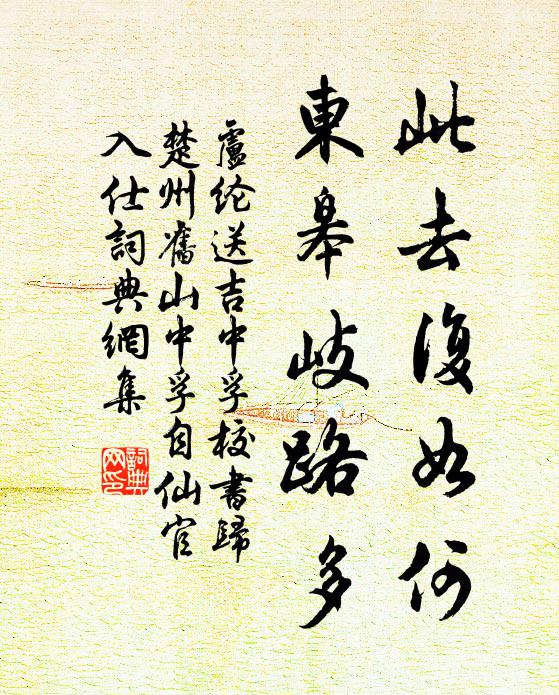 此去復如何
東皋岐路多
盧纶送吉中孚校書歸
楚州舊山中孚自仙官
入仕詞典網集
詞典
网印